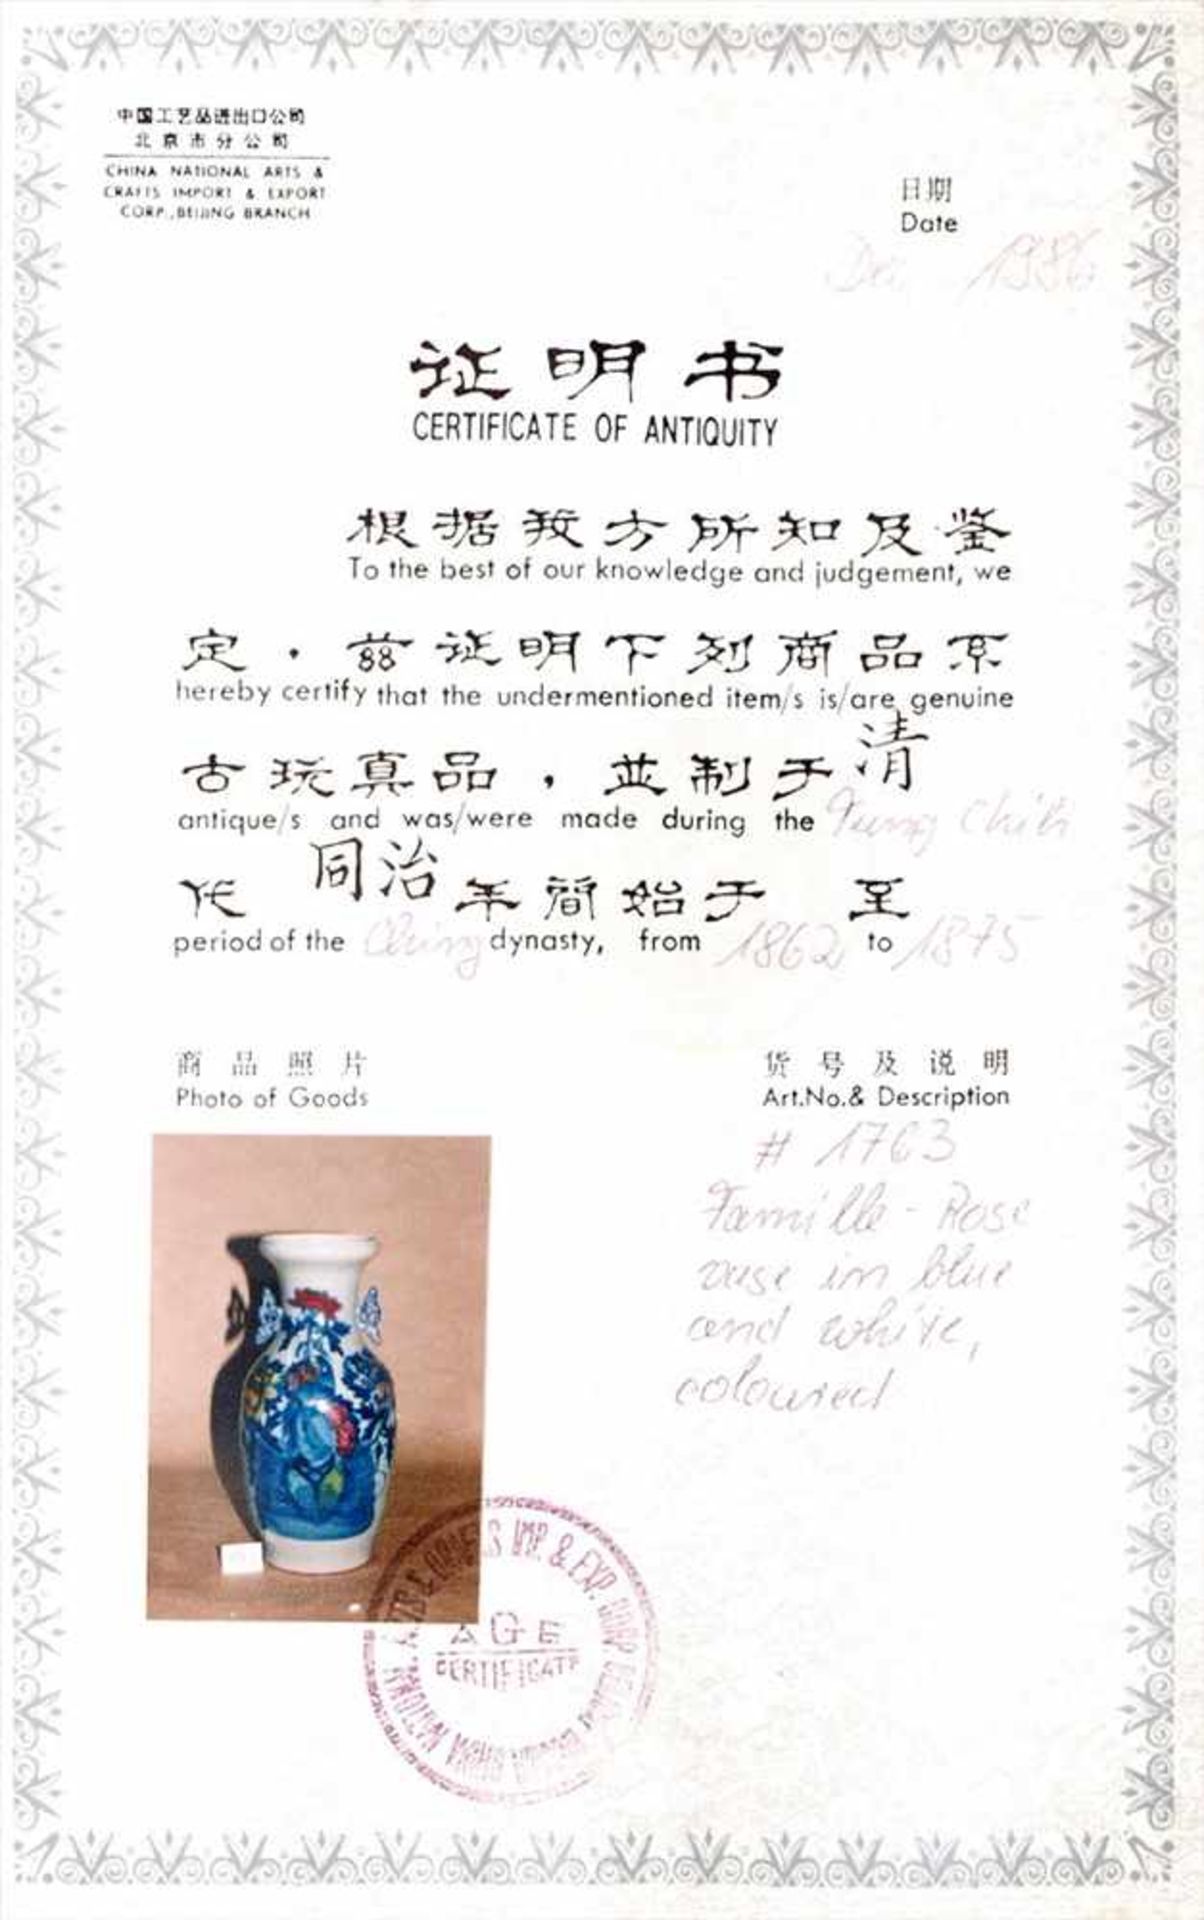 中国工艺品进出口公司
北京市分公司
CHINA NATIONAL ARTS &
CRAFTS IMPORT & EXPORT
CORP., BEIJING BRANCH
日期
Date
1986
证明书
CERTIFICATE OF ANTIQUITY
根据我方所知及鉴
To the best of our knowledge and judgement, we
定·兹证明下列商品系
hereby certify that the undermentioned item/s is/are genuine
古玩真品，並制于清
antique/s and was/were made during the Tung Chih
代 同治年间始于 至
period of the Ching dynasty, from 1862 to 1875
商品照片
Photo of Goods
货号及说明
Art.No.& Description
# 1763
Famille-Rose
vase in blue
and white,
coloured
ARTS & CRAFTS IMP. & EXP. CORP.
AGE
CERTIFICATE